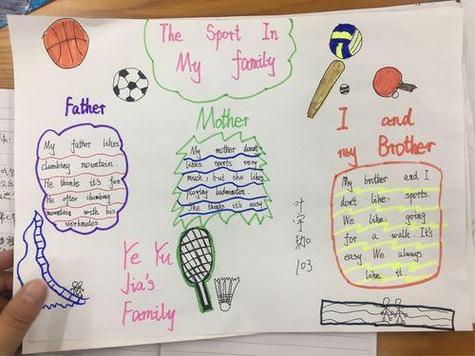 The Sport In
My family
Father
My father likes
climbing mountain.
He thinks it's fun
He often climbing
mountain with his
workmates
Mother
My mother doesn't
likes sports very
much, but she likes
playing badminton.
She thinks it's easy
I and
my Brother
My brother and I
don't like sports.
We like going
for a walk. It's
easy. We always
like it.
Ye Yu
Jia's
Family
叶
宇
103